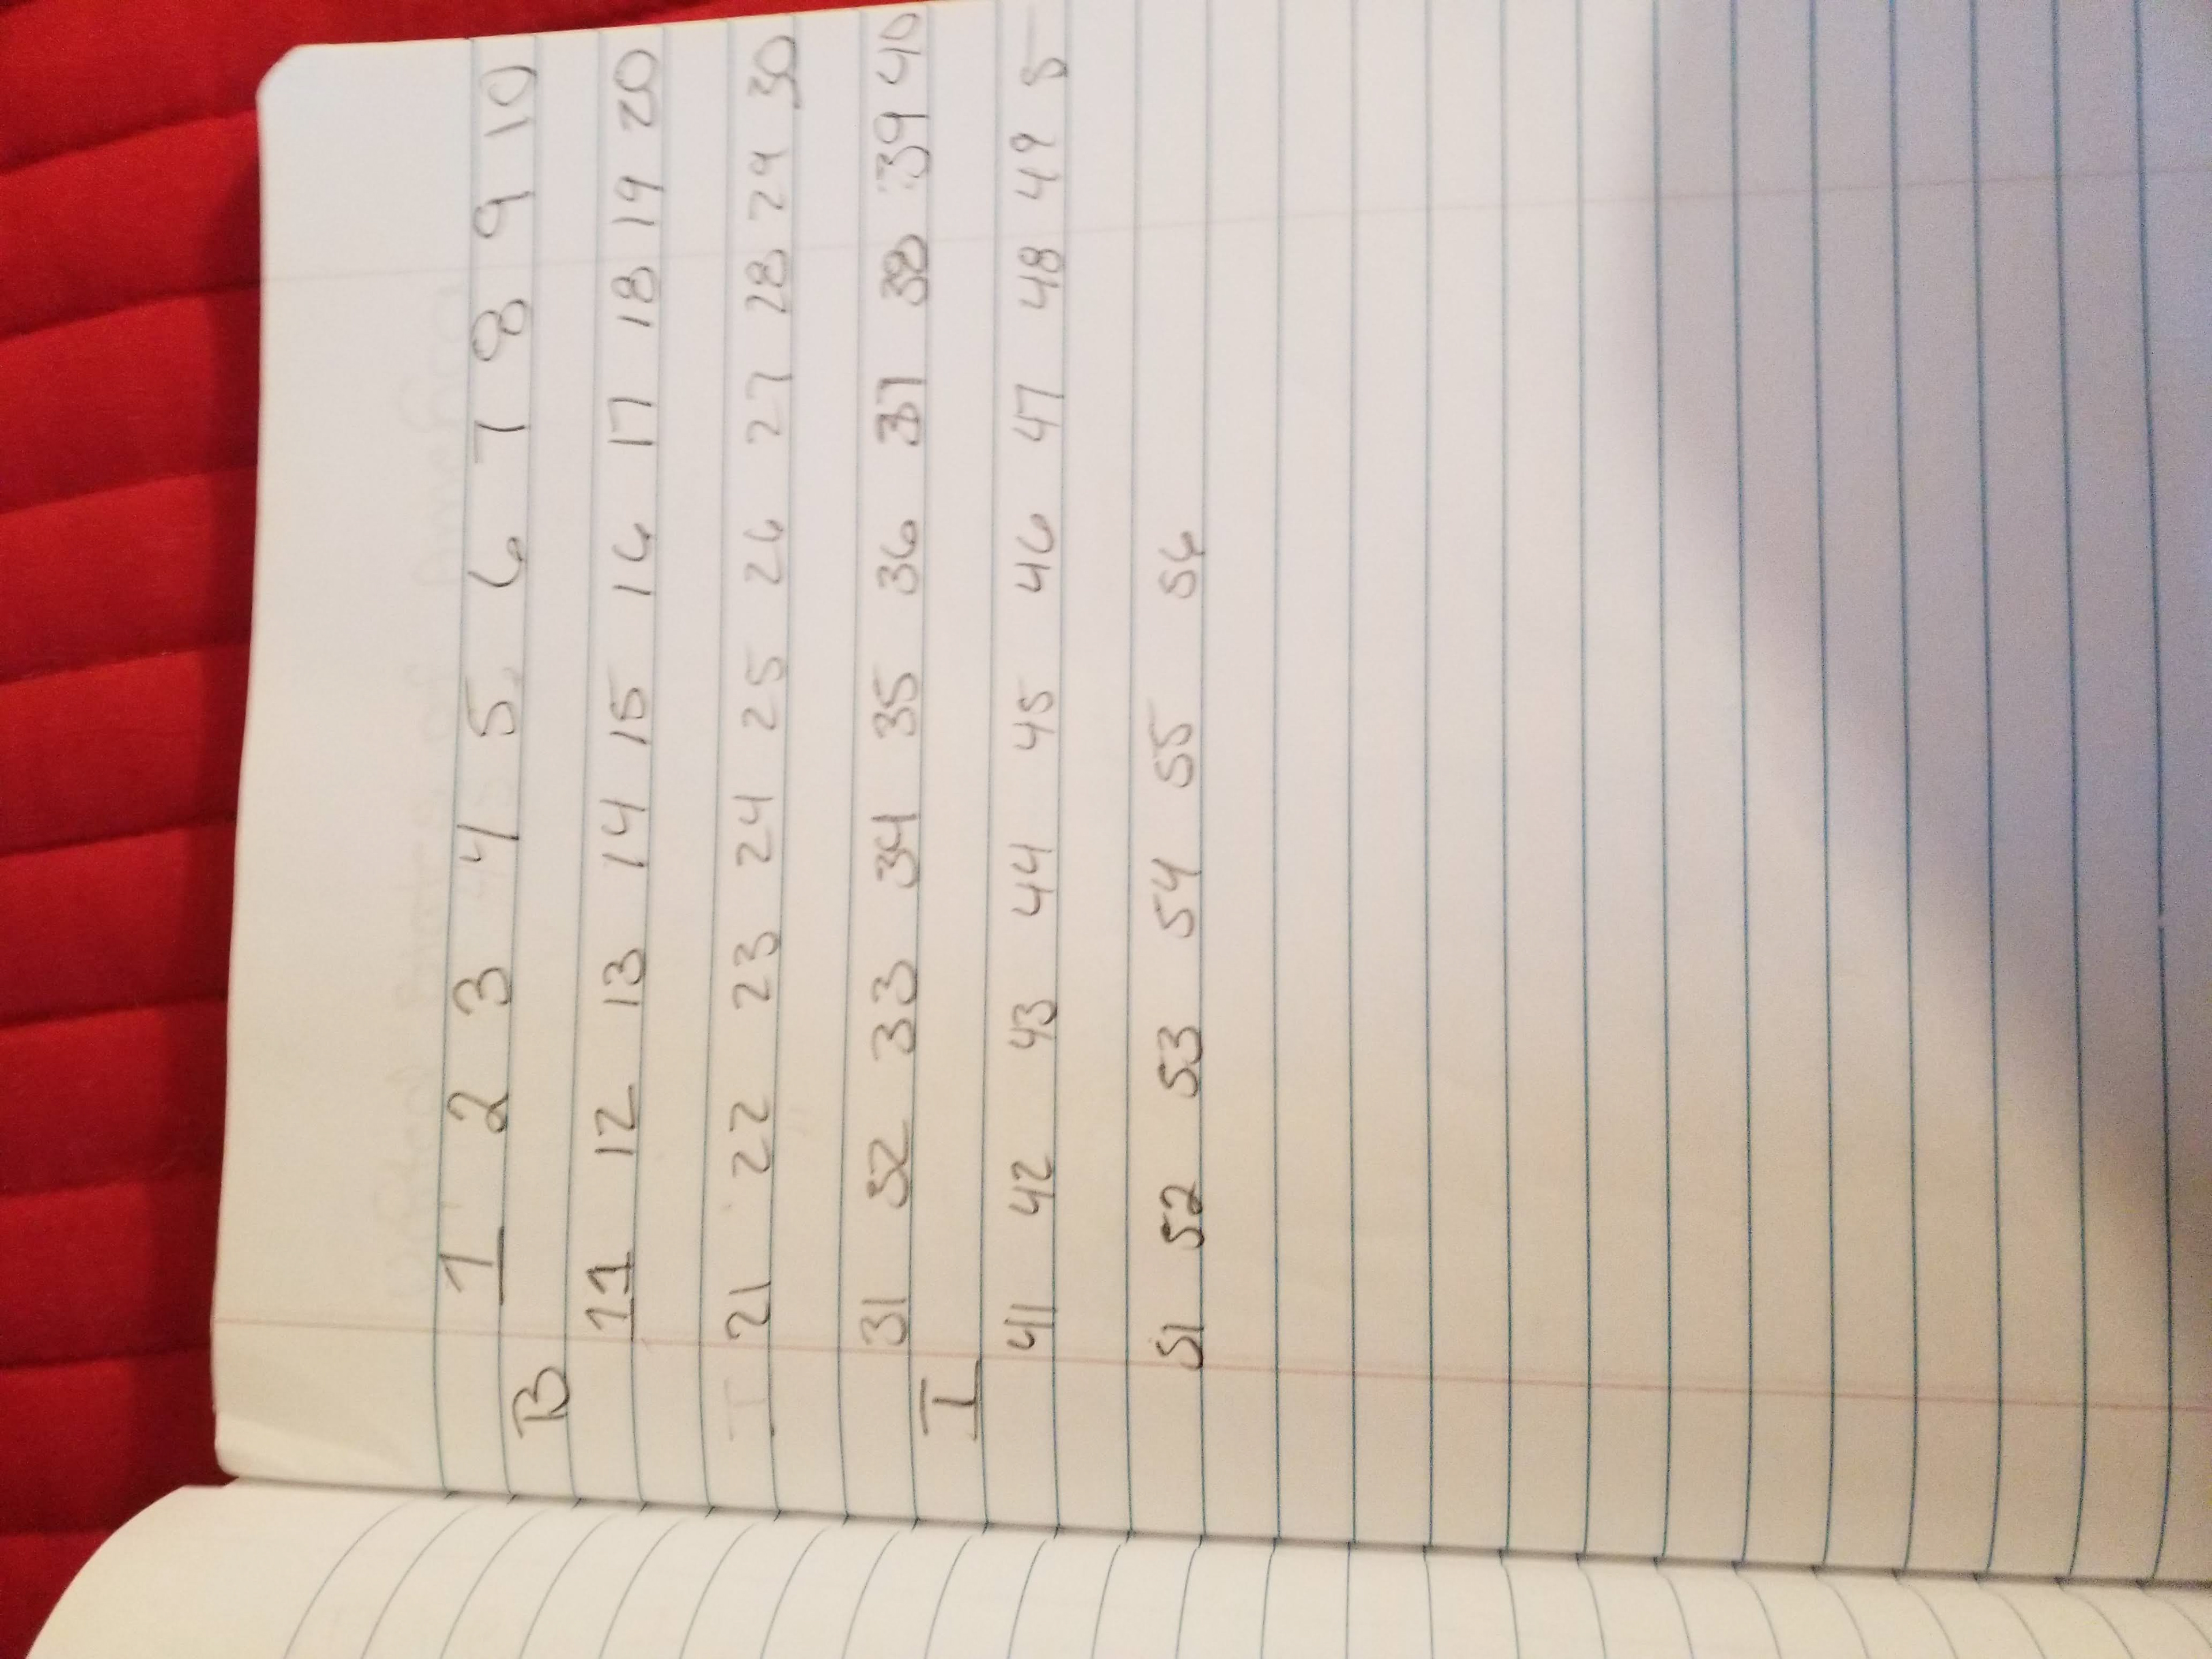 1 2 3 4 5 6 7 8 9 10
B
11 12 13 14 15 16 17 18 19 20
I 21 22 23 24 25 26 27 28 29 30
31 32 33 34 35 36 37 38 39 40
I
41 42 43 44 45 46 47 48 49 5
51 52 53 54 55 56